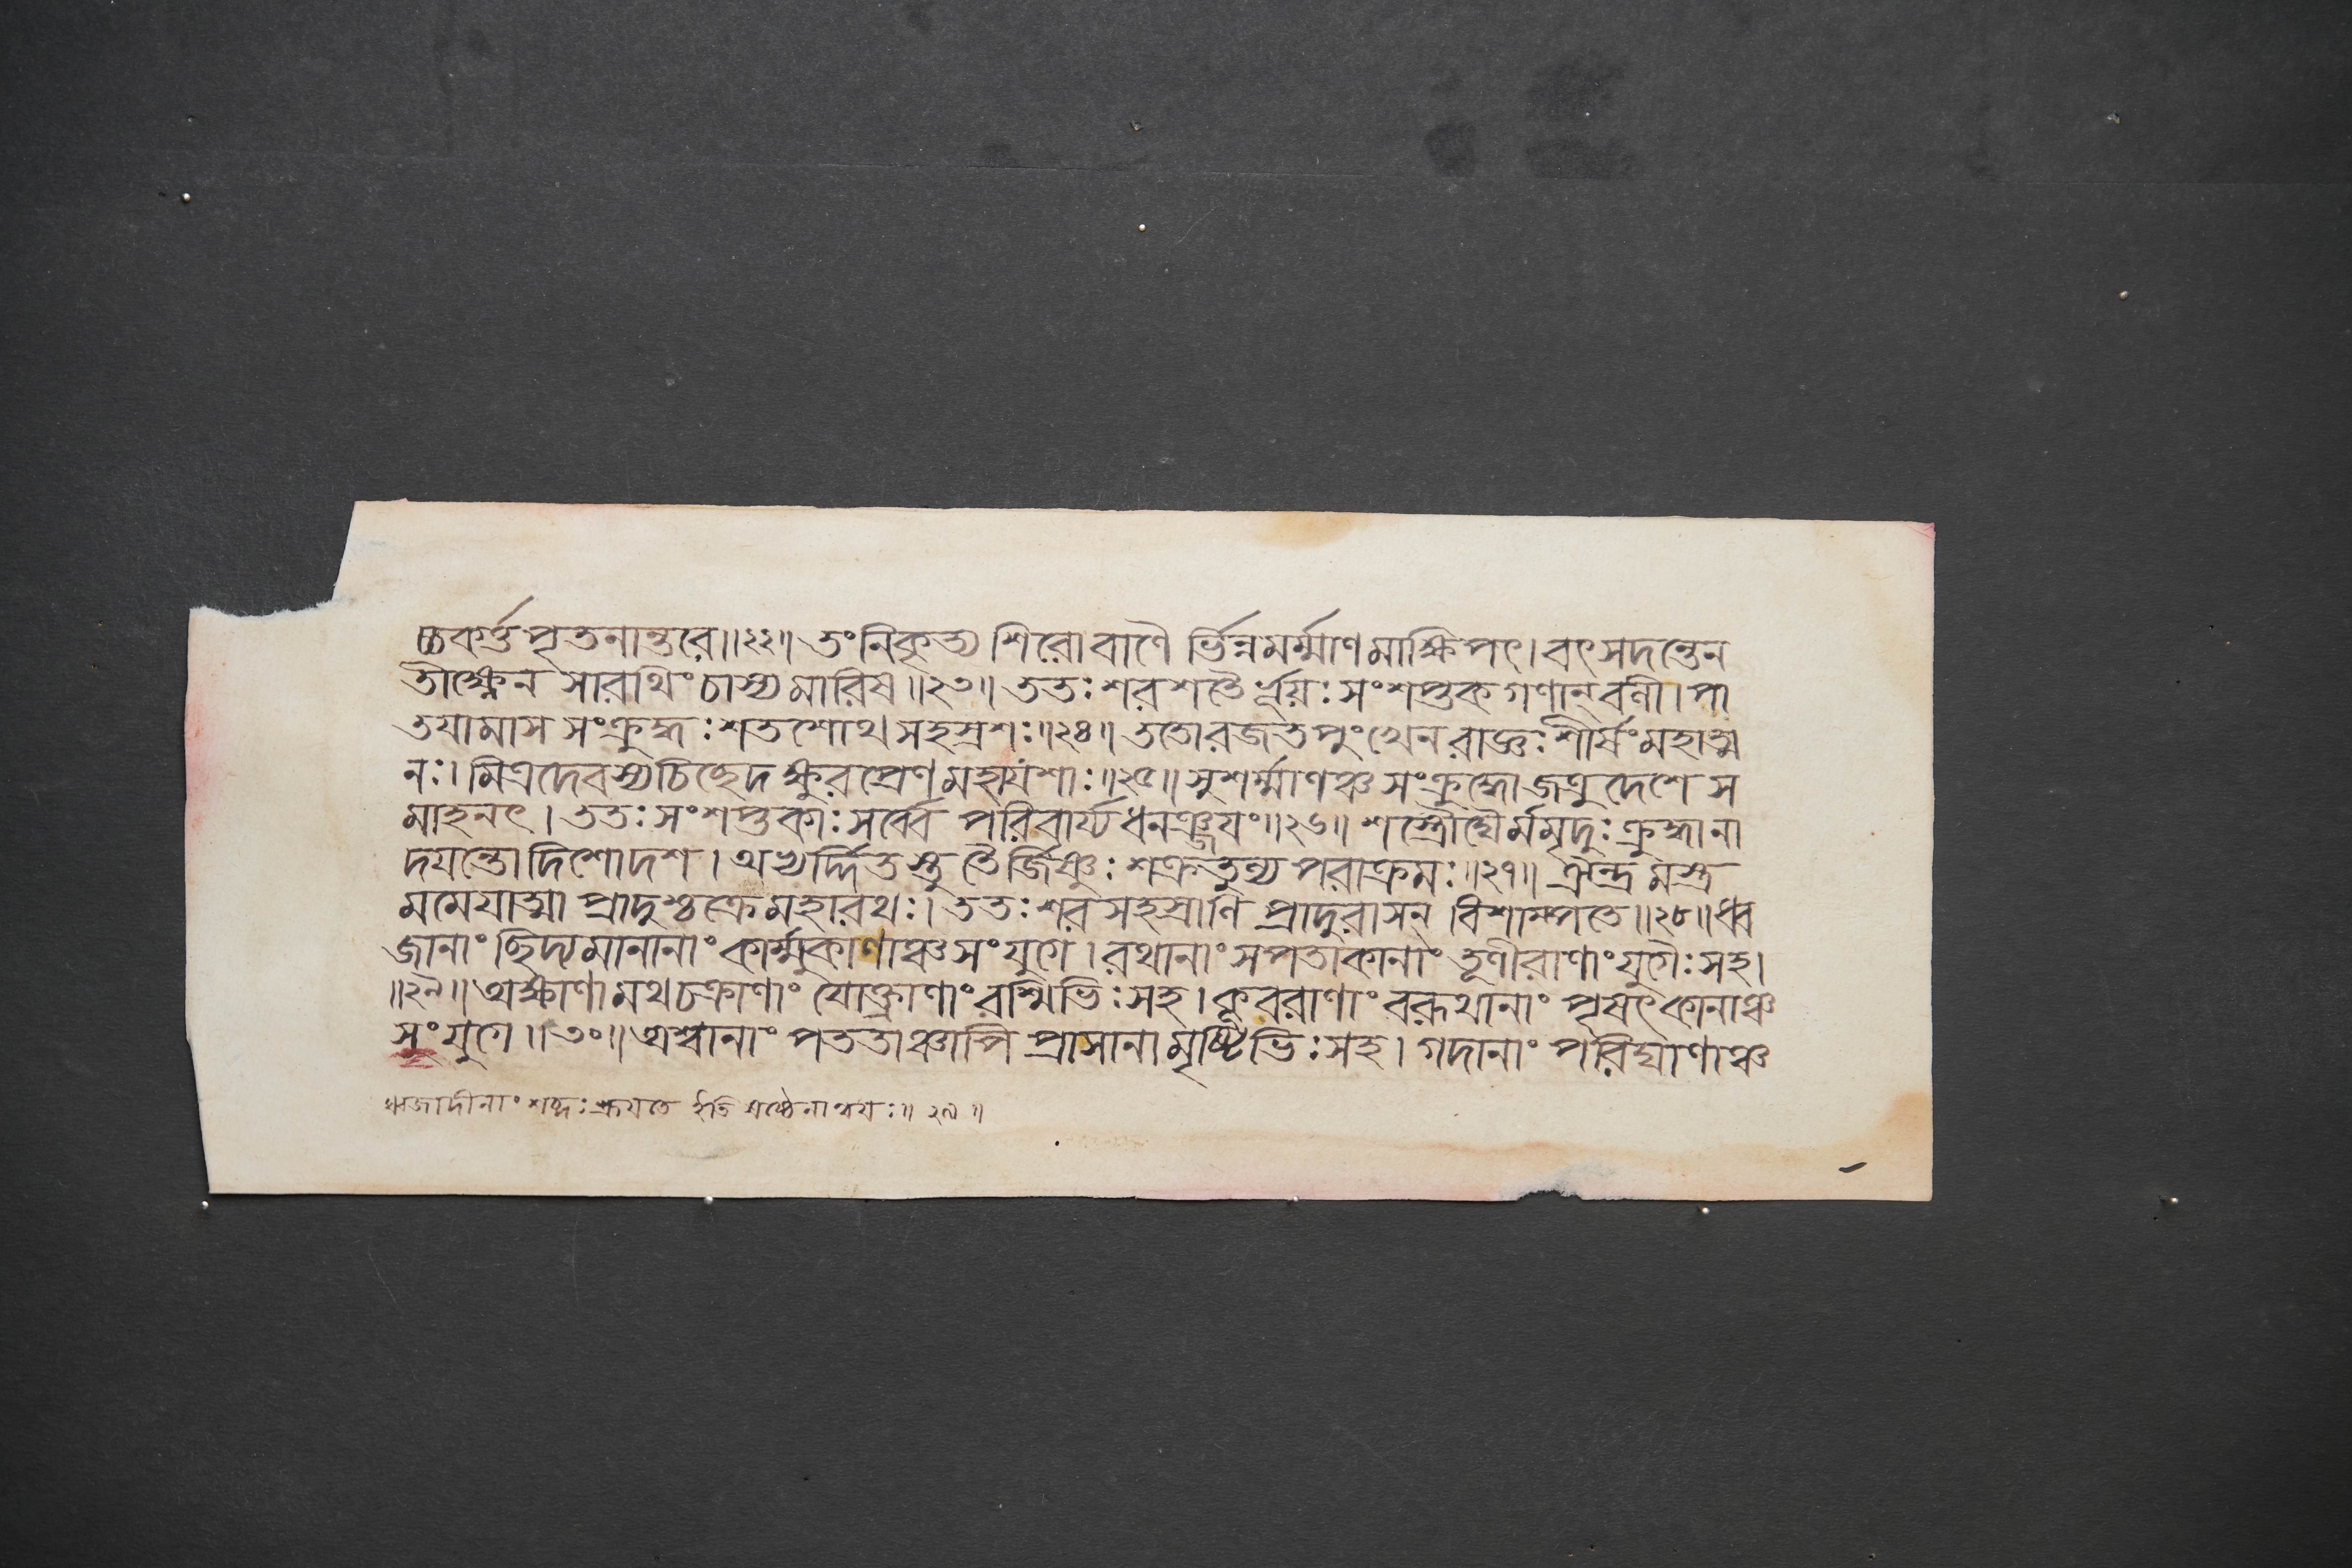 চ্চকর্ত্ত পৃতনান্তরে॥২২॥ তং নিকৃত্য শিরোবাণৈ র্ভিন্নমর্ম্মাণমাক্ষিপৎ। বৎসদন্তেন
তীক্ষ্ণেন সারথিং চাস্য মারিষ॥২৩॥ ততঃ শরশতৈ র্ভূয়ঃ সংশপ্তকগণান্ বশী। পা
তযামাস সংক্রুদ্ধঃ শতশোথ সহস্রশঃ॥২৪॥ ততো রজতপুংখেন রাজ্ঞঃ শীর্ষং মহাত্ম
নঃ। মিত্রদেবস্য চিচ্ছেদ ক্ষুরপ্রেণ মহাযশাঃ॥২৫॥ সুশর্ম্মাণঞ্চ সংক্রুদ্ধো জত্রুদেশে স
মাহনৎ। ততঃ সংশপ্তকাঃ সর্ব্বে পরিবার্য্য ধনঞ্জযং॥২৬॥ শস্ত্রৌঘৈর্মমৃদুঃ ক্রুদ্ধা না
দযন্তো দিশোদশ। অভ্যর্দ্দিতস্তু তৈর্জিষ্ণুঃ শক্রতুল্য পরাক্রমঃ॥২৭॥ ঐন্দ্রমস্ত্র
মমেযাত্মা প্রাদুশ্চক্রে মহারথঃ। ততঃ শরসহস্রাণি প্রাদুরাসন্ বিশাম্পতে॥২৮॥ ধ্ব
জানাং ছিদ্যমানানাং কার্ম্মুকাণাঞ্চ সংযুগে। রথানাং সপতাকানাং তূণীরাণাং যুগৈঃ সহ।
॥২৯॥ অক্ষাণামথ চক্রাণাং যোক্ত্রাণাং রশ্মিভিঃ সহ। কূবরাণাং বরূথানাং পৃষৎকানাঞ্চ
সংযুগে॥৩০॥ অশ্বানাং পততাঞ্চাপি প্রাসানামৃষ্টিভিঃ সহ। গদানাং পরিঘাণাঞ্চ
ধ্বজাদীনাং শব্দঃ শ্রূযতে ইতি ষষ্ঠেনান্বযঃ॥২৯॥